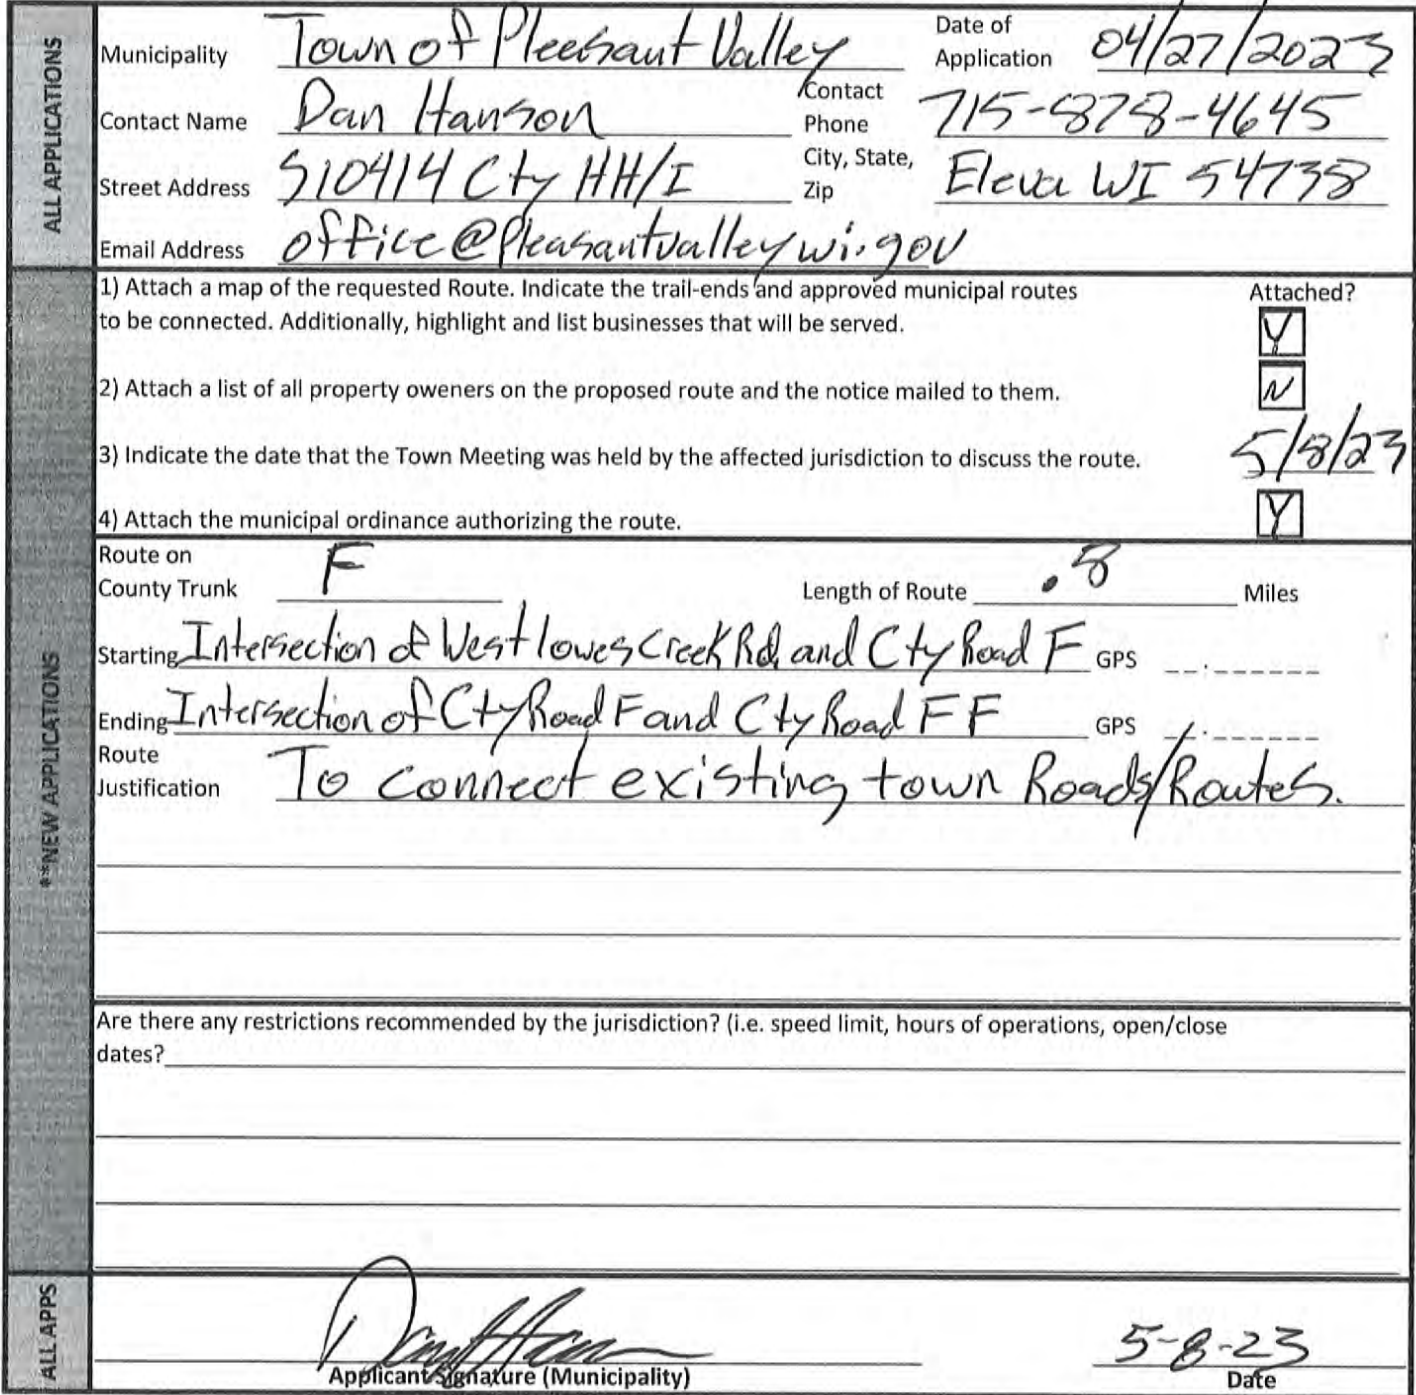 ALL APPLICATIONS
Municipality Town of Pleasant Valley Date of Application 04/27/2023
Contact Name Dan Hanson Contact Phone 715-878-4645
Street Address S10414 Cty HH/I City, State, Zip Eleva WI 54738
Email Address office@pleasantvalleywi.gov
**NEW APPLICATIONS
1) Attach a map of the requested Route. Indicate the trail-ends and approved municipal routes Attached?
to be connected. Additionally, highlight and list businesses that will be served. Y
2) Attach a list of all property oweners on the proposed route and the notice mailed to them. N
3) Indicate the date that the Town Meeting was held by the affected jurisdiction to discuss the route. 5/8/23
4) Attach the municipal ordinance authorizing the route. Y
Route on County Trunk F Length of Route .8 Miles
Starting Intersection of West lowes Creek Rd, and Cty Road F GPS
Ending Intersection of Cty Road F and Cty Road FF GPS
Route Justification To connect existing town Roads/Routes.
Are there any restrictions recommended by the jurisdiction? (i.e. speed limit, hours of operations, open/close
dates?
ALL APPS
5-8-23
Applicant Signature (Municipality) Date